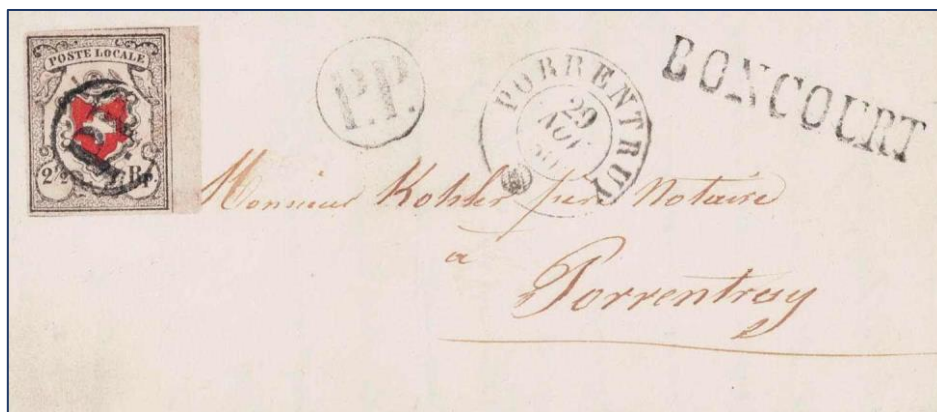 POSTE LOCALE
2½ Rp.
P.P.
PORRENTRUY
29
NOV
BONCOURT
Monsieur Kohler père Notaire
à
Porrentruy